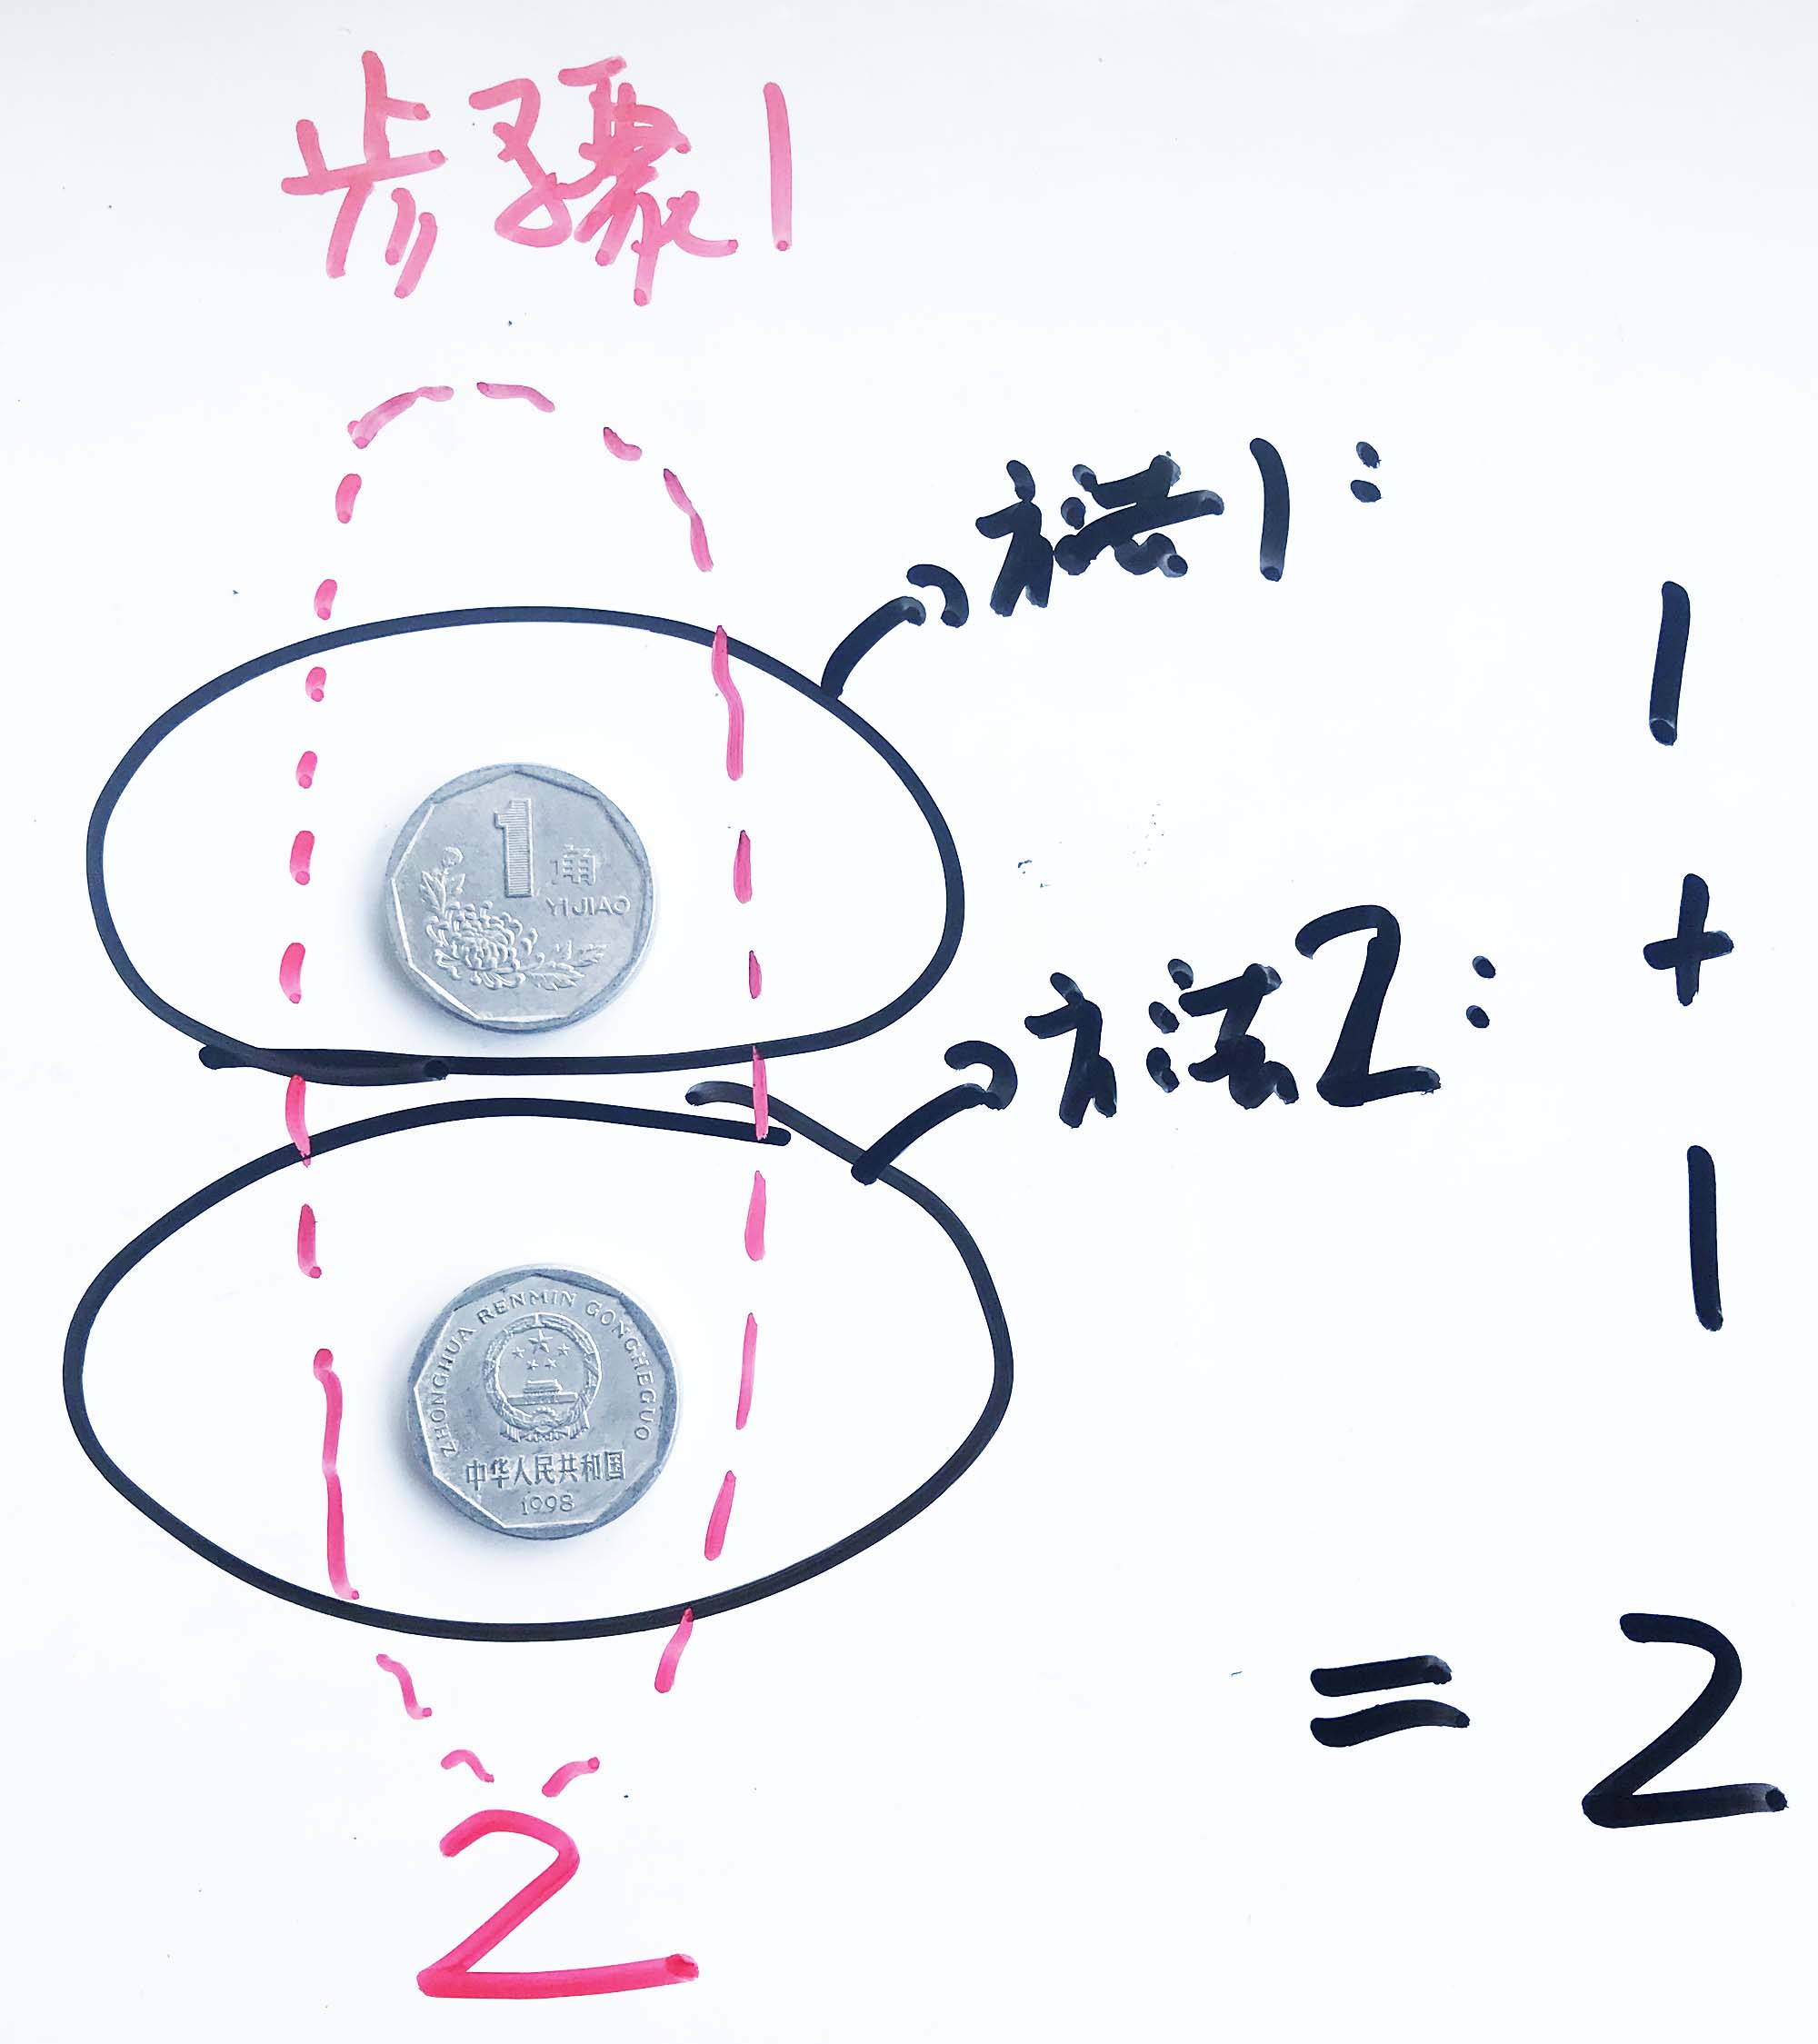 步骤1
方法1:
1
1角
YIJIAO
+
方法2:
1
ZHONGHUA RENMIN GONGHEGUO
中华人民共和国
1998
= 2
2